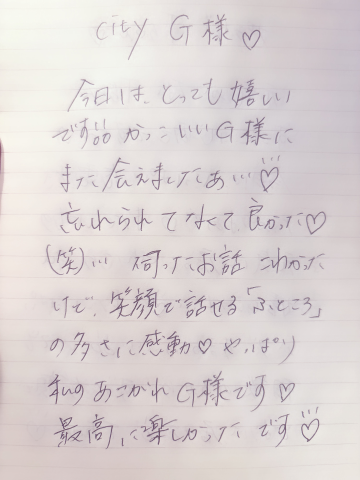 city G様♡
今日は、とっても嬉しい
です🎶 かっこいいG様に
また会えましたぁ…♡
忘れられてなくて良かった♡
(笑)… 伺ったお話 こわかった
けど、笑顔で話せる「ふところ」
の多さに感動♡ やっぱり
私のあこがれG様です♡
最高に楽しかったです♡